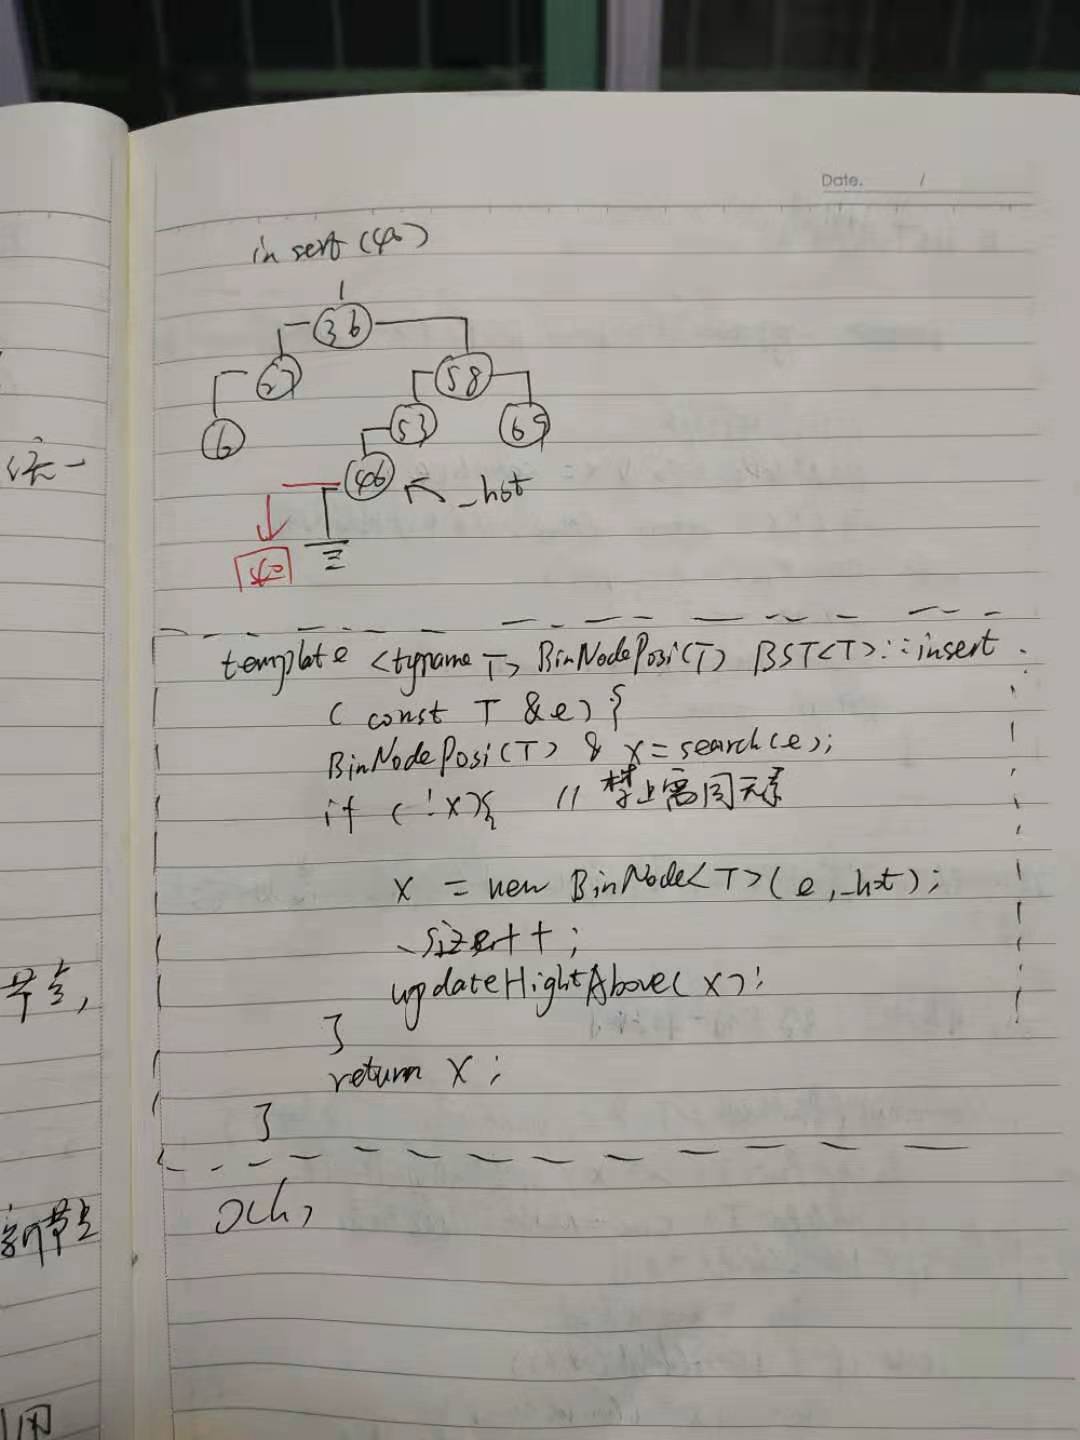 Date. /
insert (40)
36
27 58
6 53 65
46 _hot
40
统一
template <typname T> BinNodePosi(T) BST<T>::insert
( const T &e) {
BinNodePosi(T) & x = search(e);
if ( !x){ // 禁止雷同元素
x = new BinNode<T>(e, _hot);
_size++;
updateHightAbove(x);
}
return x;
}
节点,
O(h)
新节点
用